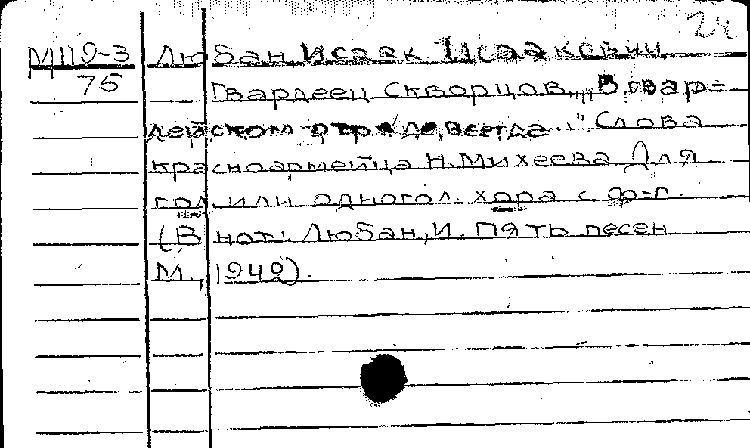 24
М112-3 Любан Исаак Исаакович
75
Гвардеец Скворцов. "В гвар=
дейском отряде, всегда..." Слова
красноармейца Н. Михеева. Для
гол. или одногол. хора с ф-п.
(В нот: Любан, И. Пять песен
М., 1942).